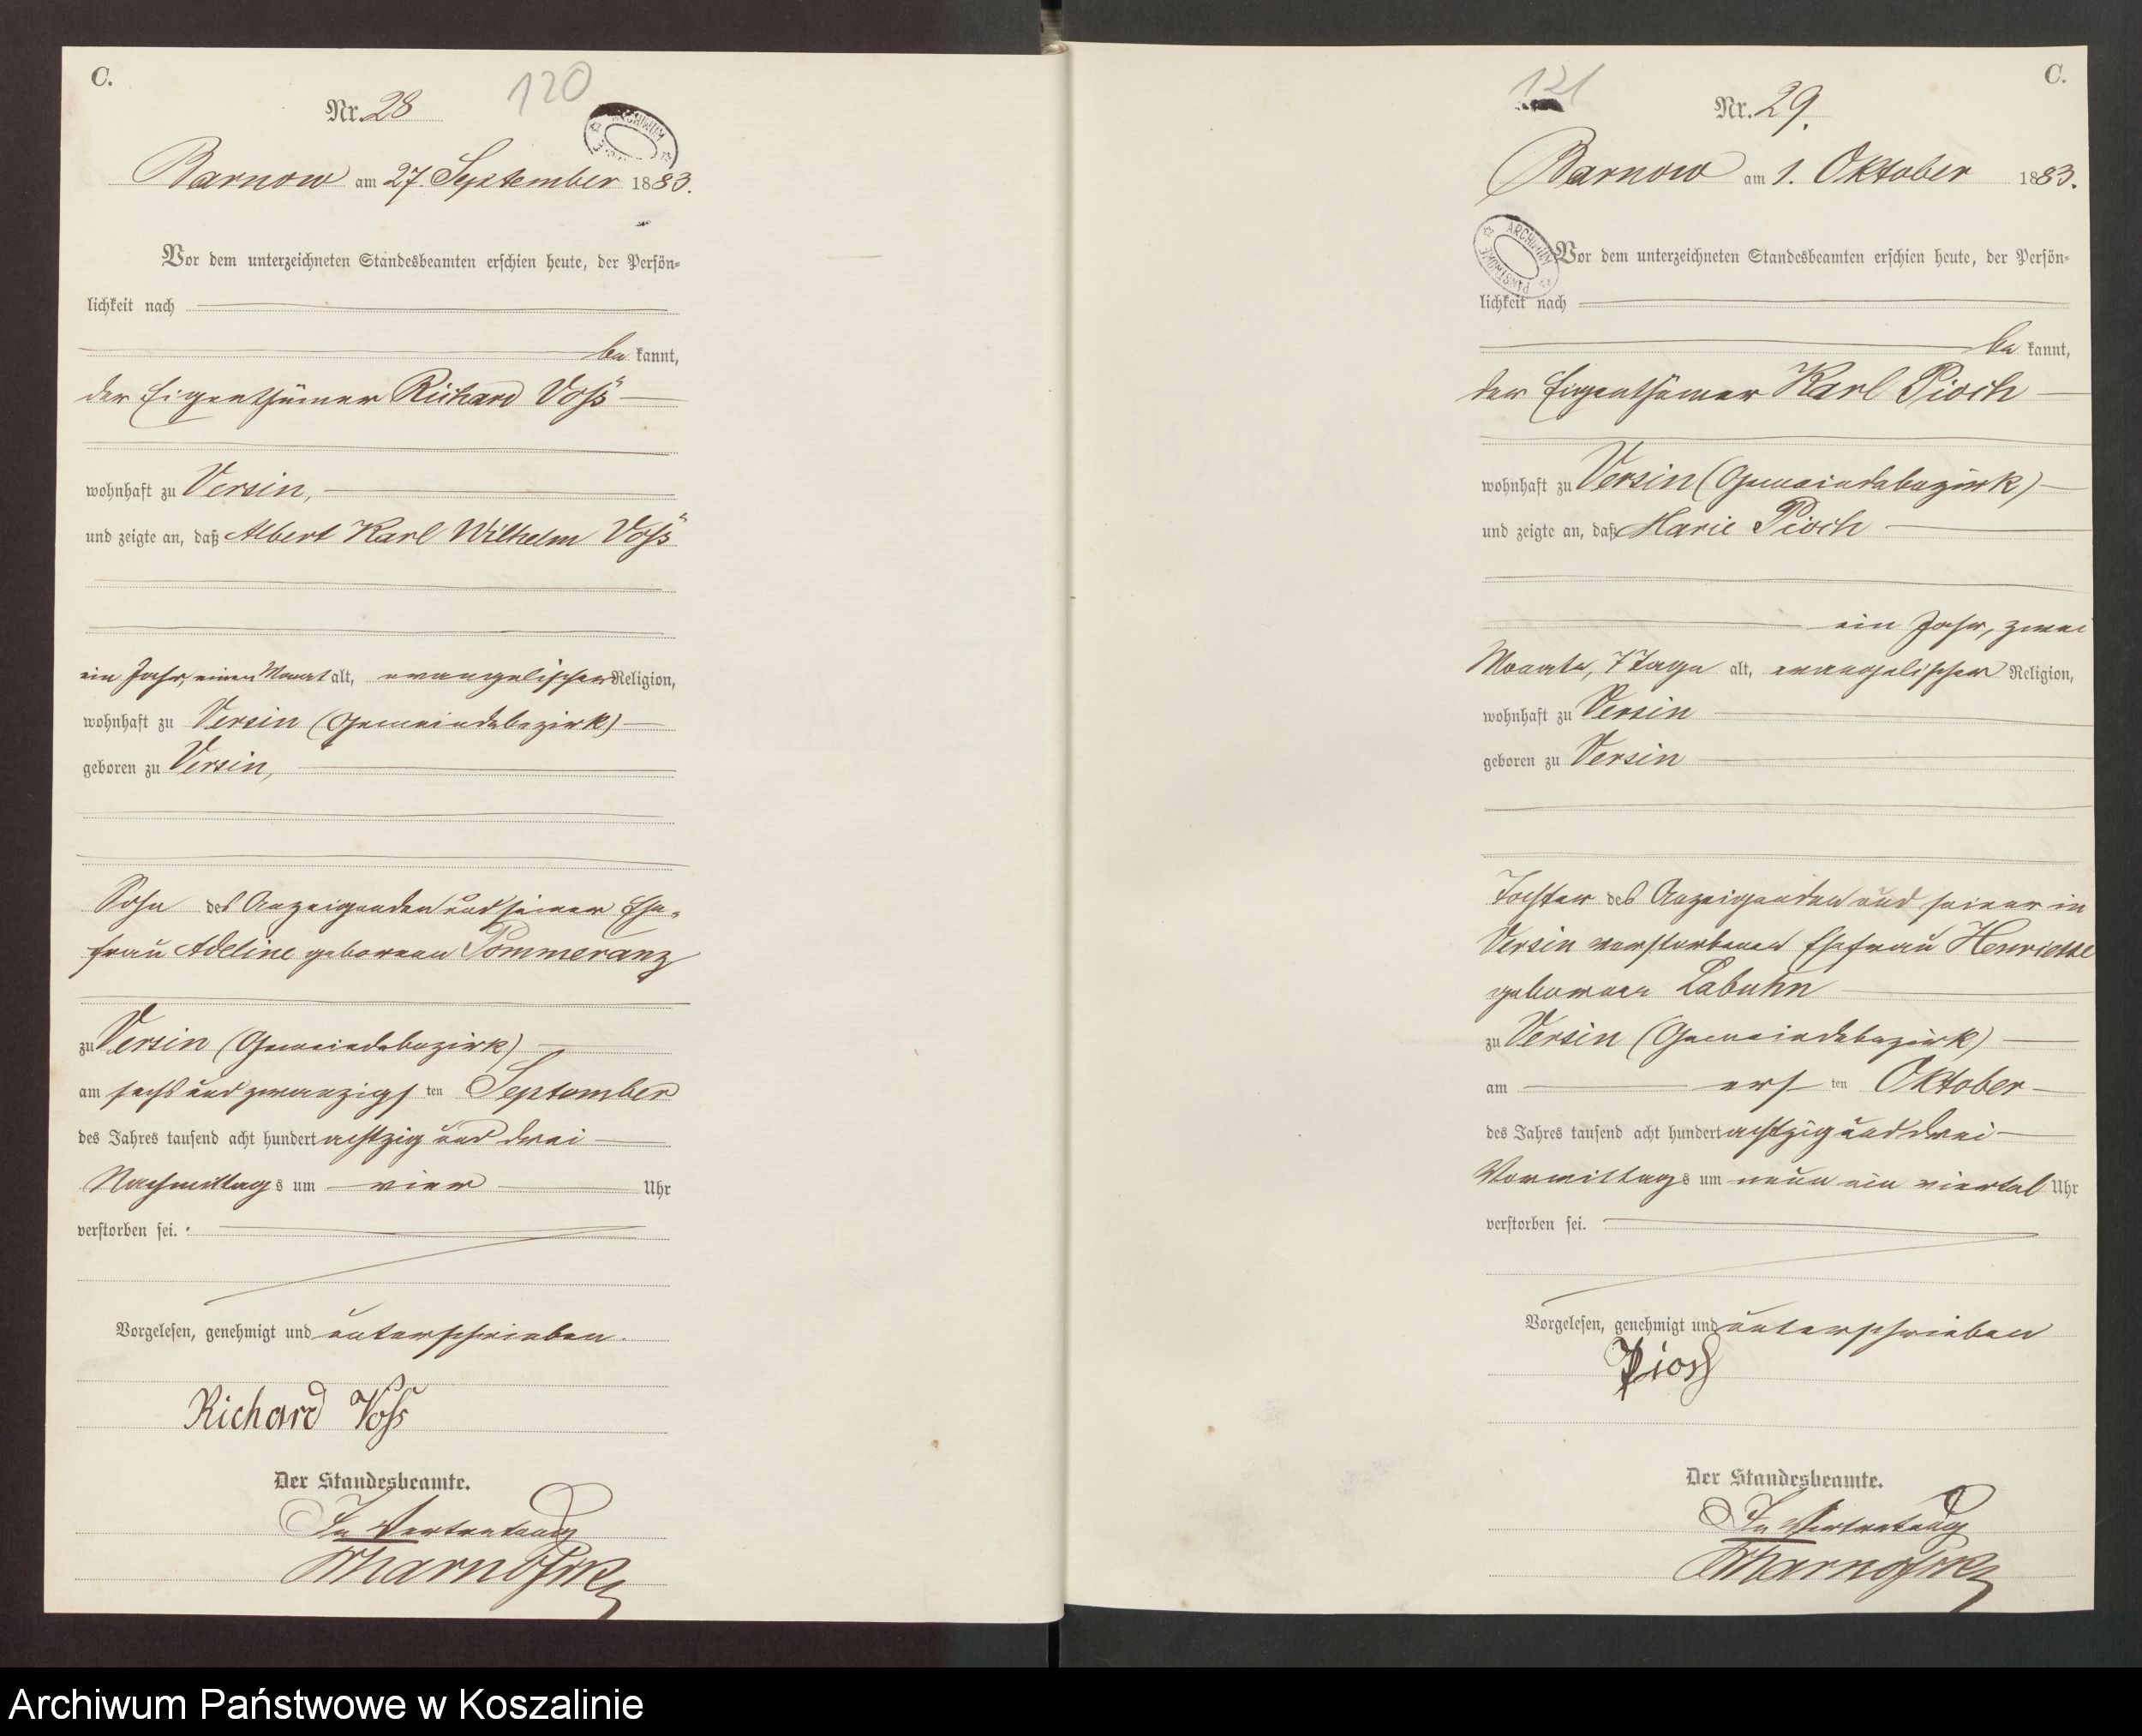 C.
120
Nr. 28
ARCHIWUM
Barnow am 27. September 1883.
Vor dem unterzeichneten Standesbeamten erschien heute, der Persön-
lichkeit nach
bekannt,
der Eigenthümer Richard Voß
wohnhaft zu Versin,
und zeigte an, daß Albert Karl Wilhelm Voß
ein Jahr, einen Monat alt, evangelischer Religion,
wohnhaft zu Versin (Gemeindebezirk)
geboren zu Versin,
Sohn des Anzeigenden und seiner Ehe-
frau Adeline geborenen Pommeranz
zu Versin (Gemeindebezirk)
am sechs und zwanzigsten September
des Jahres tausend acht hundert achtzig und drei
Nachmittags um vier Uhr
verstorben sei.
Vorgelesen, genehmigt und unterschrieben.
Richard Voß
Der Standesbeamte.
In Vertretung
C.
121
Nr. 29.
Barnow am 1. Oktober 1883.
ARCHIWUM PAŃSTWOWE
Vor dem unterzeichneten Standesbeamten erschien heute, der Persön-
lichkeit nach
bekannt,
der Eigenthümer Karl Pioch
wohnhaft zu Versin (Gemeindebezirk)
und zeigte an, daß Marie Pioch
ein Jahr, zwei
Monate, 7 Tage alt, evangelischer Religion,
wohnhaft zu Versin
geboren zu Versin
Tochter des Anzeigenden und seiner in
Versin verstorbenen Ehefrau Henriette
geborenen Labuhn
zu Versin (Gemeindebezirk)
am ersten Oktober
des Jahres tausend acht hundert achtzig und drei
Vormittags um neun ein viertel Uhr
verstorben sei.
Vorgelesen, genehmigt und unterschrieben
Pioch
Der Standesbeamte.
In Vertretung
Archiwum Państwowe w Koszalinie